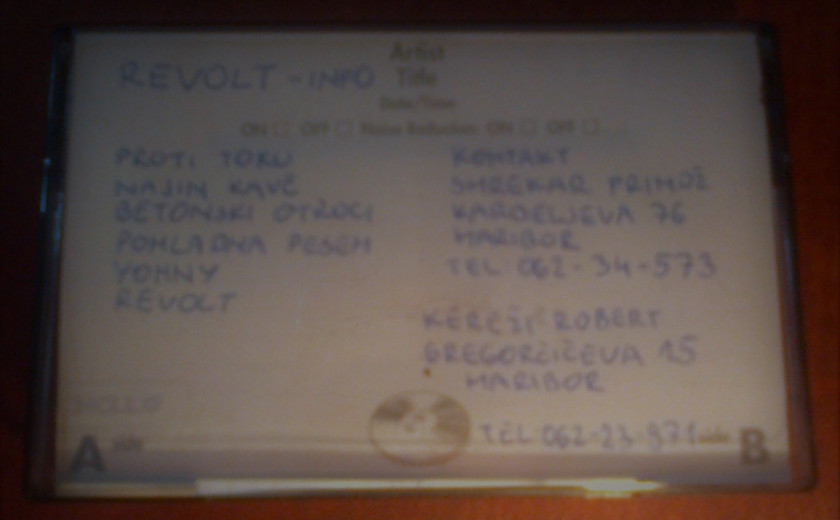 Artist
REVOLT - INFO Title
Date/Time
ON OFF Noise Reduction ON OFF
PROTI TOKU
NAJIN KAVČ
BETONSKI OTROCI
POMLADNA PESEM
YOHNY
REVOLT
KONTAKT
SMREKAR PRIMOŽ
KARDELJEVA 76
MARIBOR
TEL: 062-34-573
ROBERT
GREGORČIČEVA 15
MARIBOR
TEL: 062-23-971
A side
side B